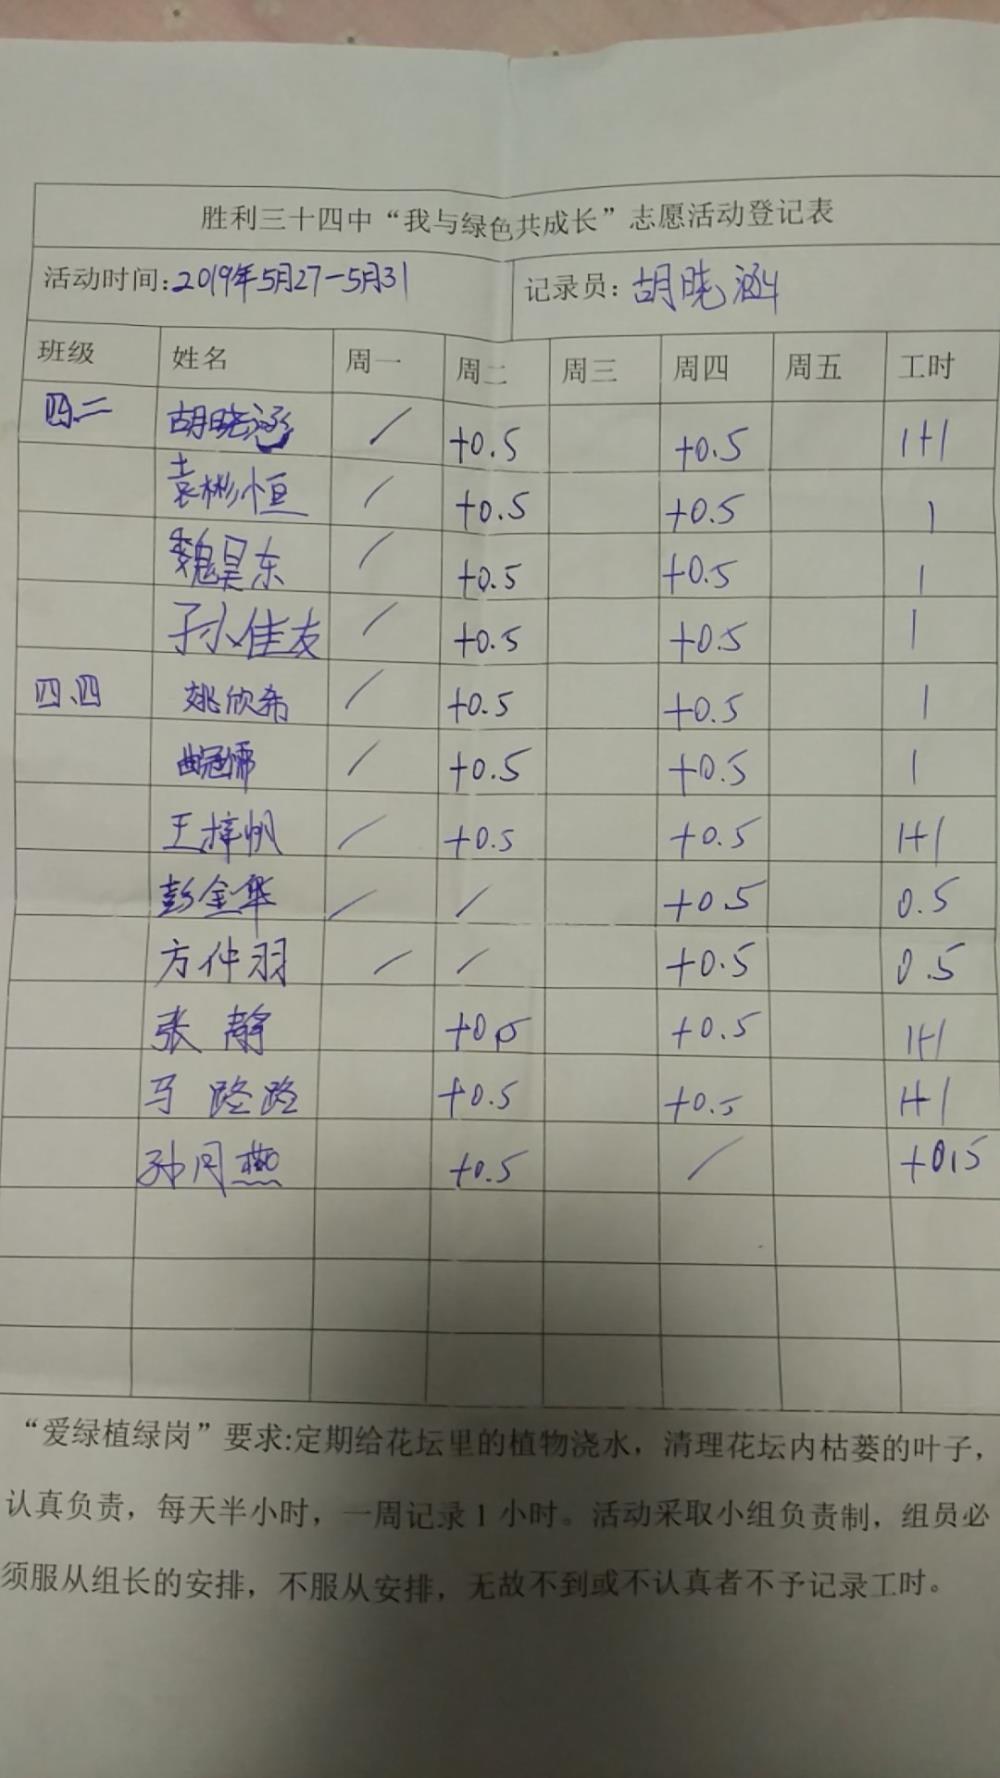 胜利三十四中“我与绿色共成长”志愿活动登记表
活动时间:2019年5月27-5月31 记录员:胡晓涵
班级 姓名 周一 周二 周三 周四 周五 工时
四二 胡晓涵 / +0.5 +0.5 1+1
袁彬恒 / +0.5 +0.5 1
魏昊东 / +0.5 +0.5 1
孙佳友 / +0.5 +0.5 1
四.四 姚欣希 / +0.5 +0.5 1
曲冠儒 / +0.5 +0.5 1
王梓帆 / +0.5 +0.5 1+1
彭金华 / / +0.5 0.5
方仲羽 / / +0.5 0.5
张静 +0.5 +0.5 1+1
马路路 +0.5 +0.5 1+1
孙月燕 +0.5 / +0.5
“爱绿植绿岗”要求:定期给花坛里的植物浇水，清理花坛内枯萎的叶子，
认真负责，每天半小时，一周记录1小时。活动采取小组负责制，组员必
须服从组长的安排，不服从安排，无故不到或不认真者不予记录工时。